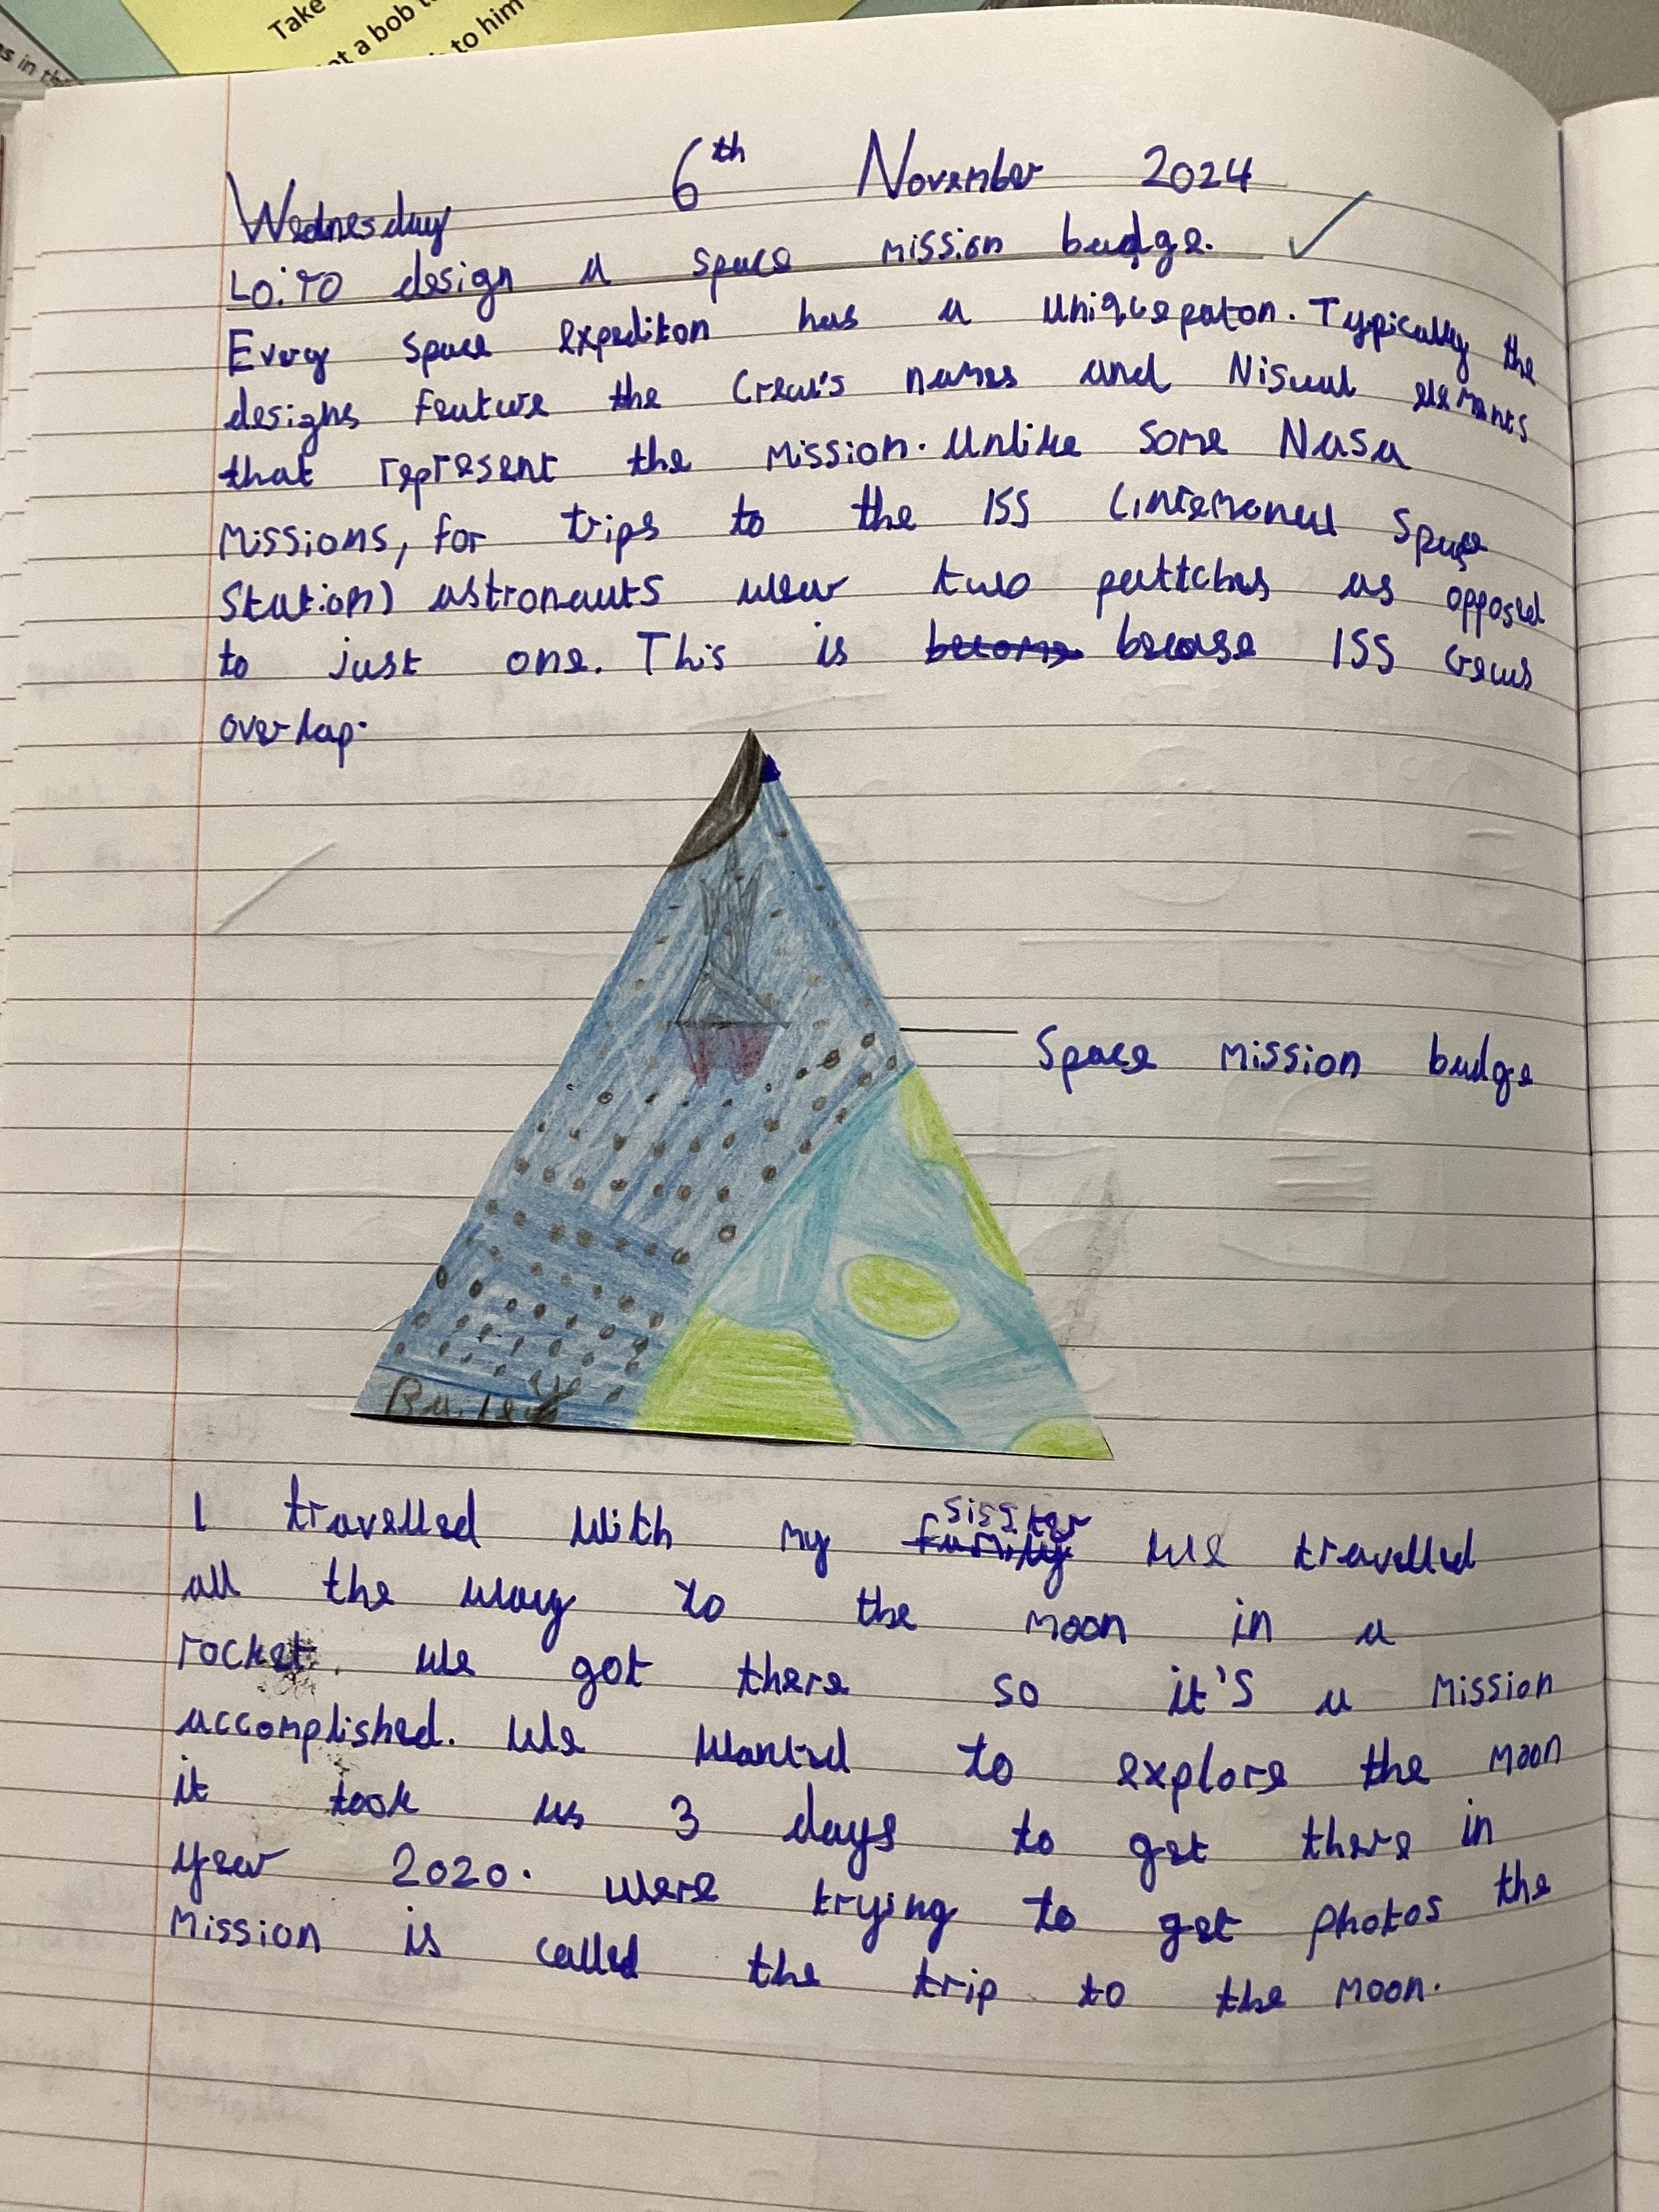 Take
ot a bob t
to him
s in th
Wednesday 6th November 2024
Lo: To design a space mission badge.
Every space expediton has a unique paton. Typically the
designs feature the Crew's names and Visual elemants
that represent the mission. Unlike some Nasa
missions, for trips to the ISS (internonal Space
Station) astronauts wear two pattches as opposed
to just one. This is become becase ISS crews
overlap.
Space mission badge
Bailey
I travelled with my family sisster we travelled
all the way to the moon in a
rocket. We got there so it's a mission
accomplished. We wanted to explore the moon
it took us 3 days to get there in
year 2020. were trying to get photos the
mission is called the trip to the moon.